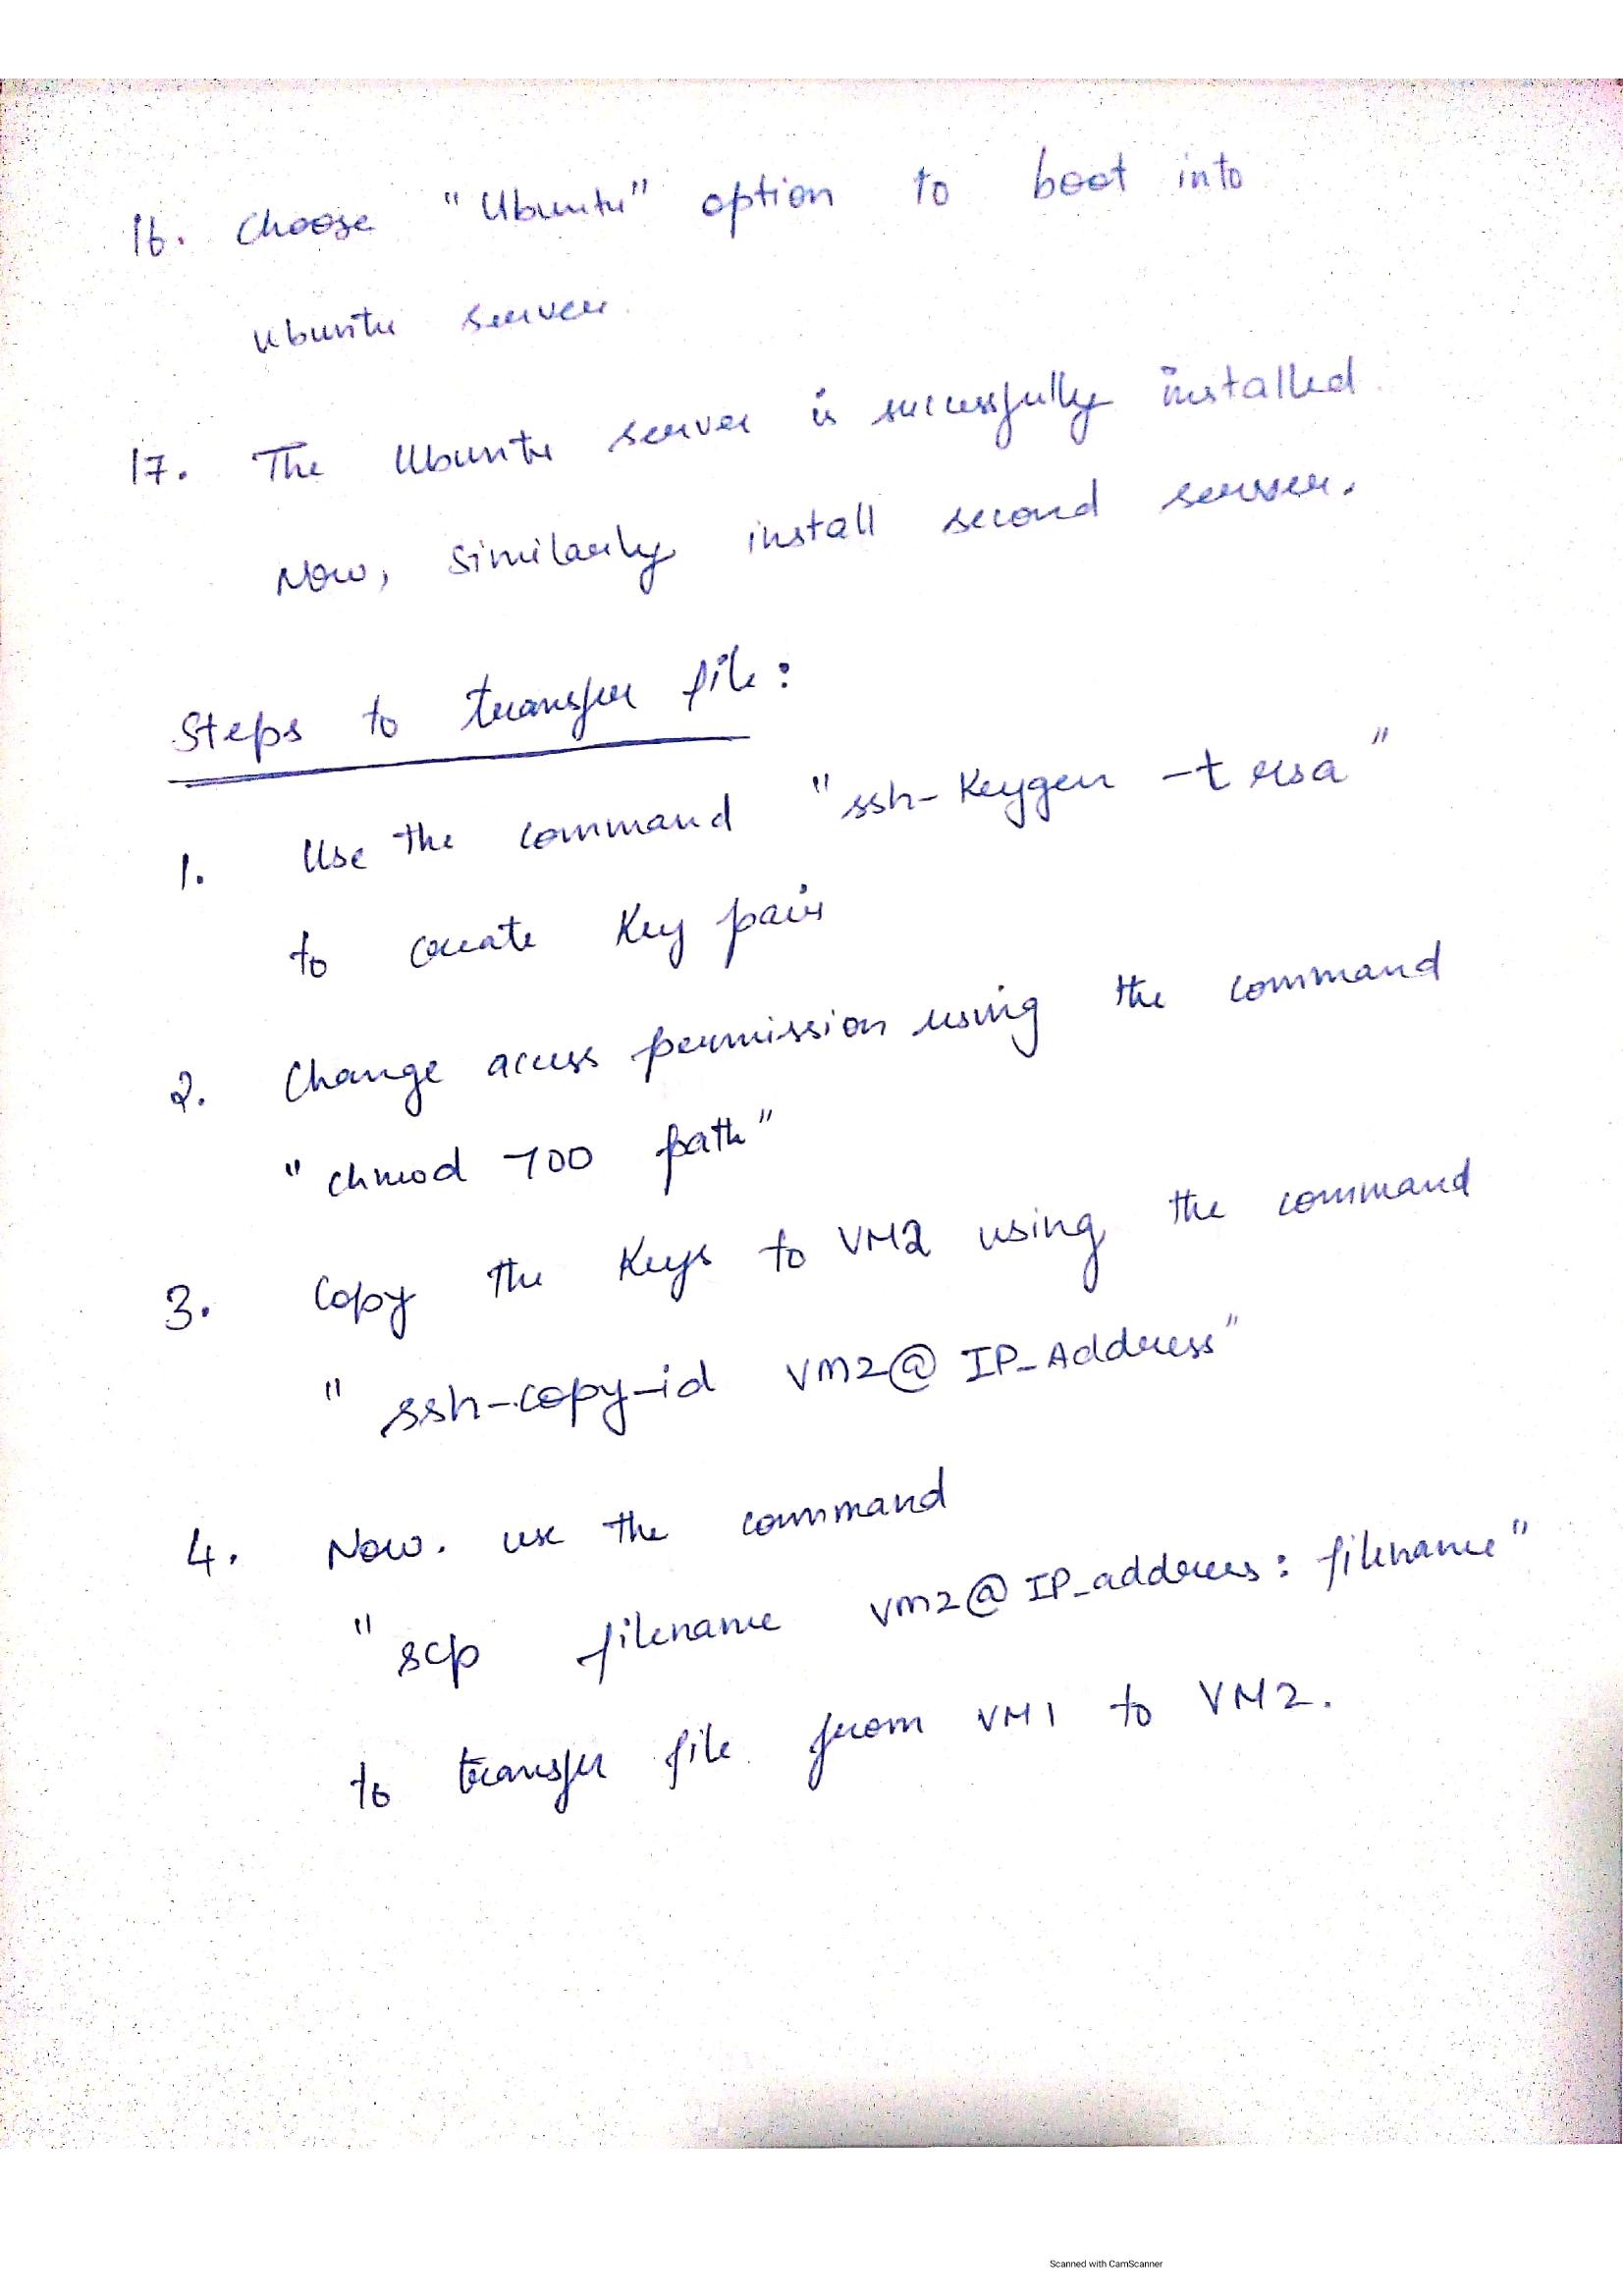 16. Choose "Ubuntu" option to boot into
ubuntu server.
17. The Ubuntu server is successfully installed.
Now, similarly install second server.
Steps to transfer file:
1. Use the command "ssh-keygen -t rsa"
to create key pair
2. Change access permission using the command
"chmod 700 path"
3. Copy the keys to VM2 using the command
"ssh-copy-id VM2@IP_Address"
4. Now. use the command
"scp filename vm2@IP_address: filename"
to transfer file from VM1 to VM2.
Scanned with CamScanner